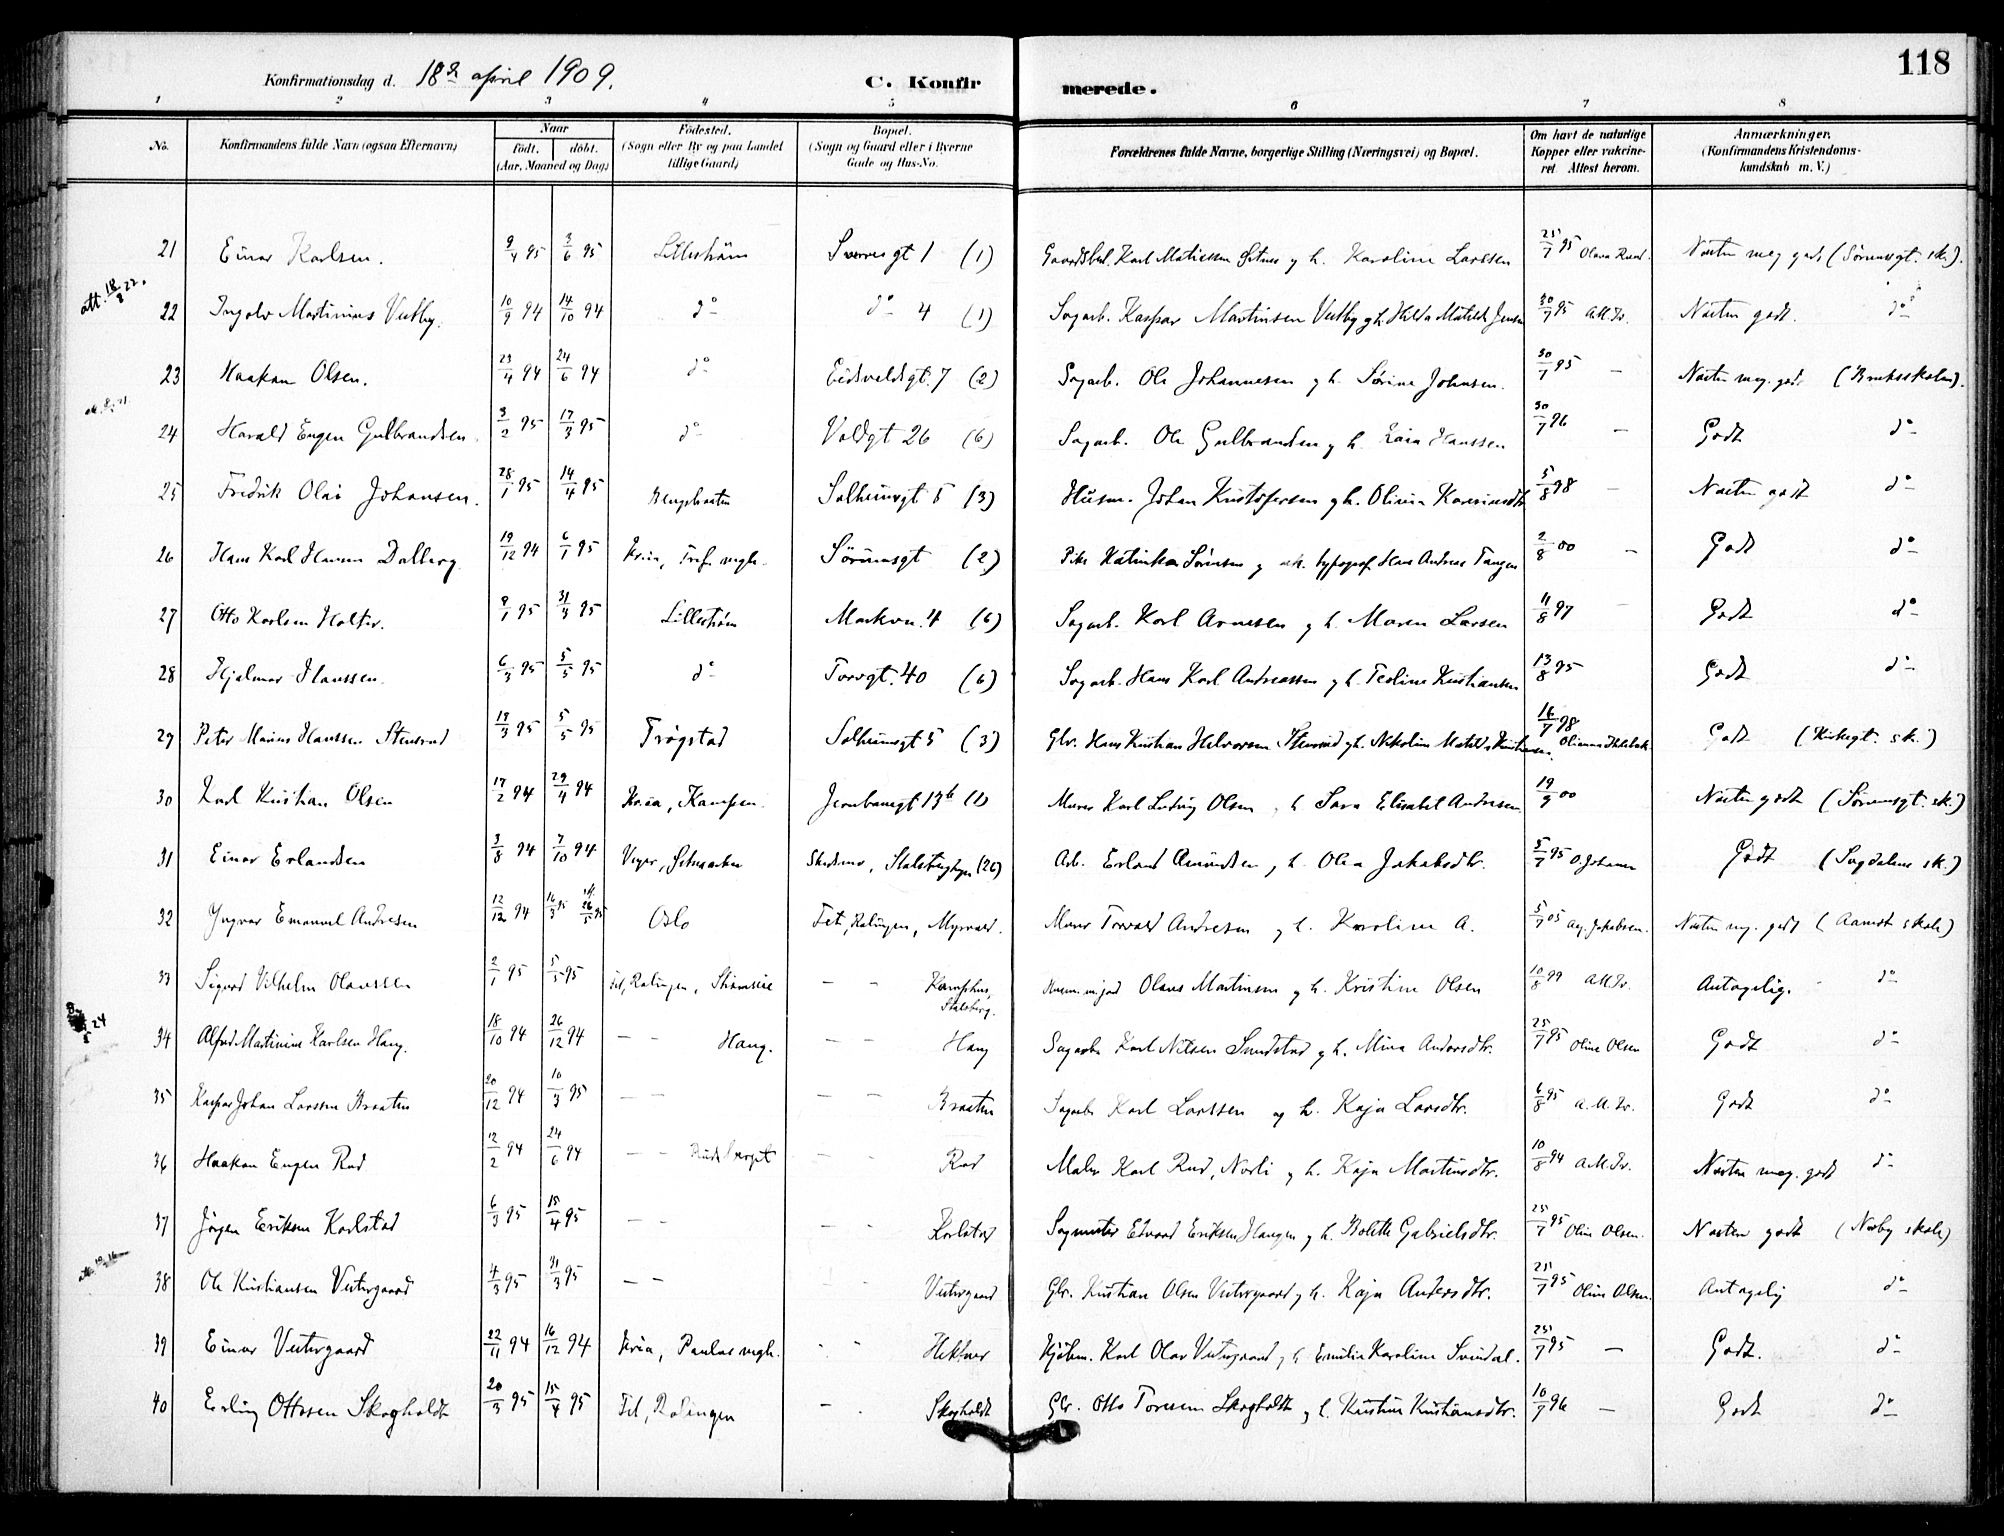 118
Konfirmationsdag d. 18de april 1909. C. Konfir merede.
1 2 3 4 5 6 7 8
No. Konfirmandens fulde Navn (ogsaa Efternavn) Naar födt. döbt. (Aar, Maaned og Dag) Födested. (Sogn eller By og paa Landet tillige Gaard) Bopæl. (Sogn og Gaard eller i Byerne Gade og Hus-No. Forældrenes fulde Navne, borgerlige Stilling (Næringsvei) og Bopæl. Om havt de naturlige Kopper eller vakcineret Attest herom. Anmærkninger. (Konfirmandens Kristendomskundskab m. V.)
21 Einar Karlsen. 9/4 95 3/6 95 Lillestrøm Sverresgt 1 (1) Karl Matiessen og h. Karoline Larssen 25/7 95 Næsten meg. godt (Sørumsgt. sk.).
att. 18/8 22.
22 Ingolv Martinius Vestby. 10/9 94 14/10 94 do do 4 (1) Sagarb. Kaspar Martinsen Vestby og h. Hilda Matilde Jensen 30/7 95 A.M.Tr. Næsten godt. do
23 Haakon Olsen. 23/4 94 24/6 94 do Eidsvoldsgt. 7 (2) Sagarb. Ole Johannesen og h. Sørine Johnsen. 30/7 95 — Næsten meg. godt (Bruksskolen).
24 Harald Eugen Gulbrandsen. 3/2 95 17/3 95 do Voldgt 26 (6) Sagarb. Ole Gulbrandsen og h. Hanssen 30/7 96 — Godt do
25 Fredrik Olai Johansen. 28/1 95 14/4 95 Solheimsgt 5 (3) Husm. Johan Kristofersen og h. Olivia 5/8 98 — Næsten godt do
26 Hans Karl Hansen Dalberg 19/12 94 6/1 95 Kria, Tref. mgh. Sørumsgt (2) Pike Katinka Sørensen og typograf Hans Andreas Tangen 2/8 00 — Godt do
27 Otto Karlsen Holter. 9/1 95 31/3 95 Lillestrøm Markvn. 4 (6) Sagarb. Karl Arnesen og h. Maren Larsen 11/8 97 — Godt do
28 Hjalmar Hanssen. 6/3 95 5/5 95 do Torvgt. 40 (6) Sagarb. Hans Karl Andreassen og h. Teoline Kristiansen 13/8 95 Godt do
29 Peter Marius Hanssen Stensrud 19/3 95 5/5 95 Trøgstad Solheimsgt 5 (3) Gbr. Hans Kristian Helvorsen Stensrud og h. Nikoline Matilde Kristiansen. 16/7 98 Godt (Kirkegt. sk.)
30 Karl Kristian Olsen 17/2 94 29/4 94 Kria, Kampen. Jernbanegt 13b (1) Murer Karl Ludvig Olsen og h. Sara Elisabet Andresen 19/9 00 Næsten godt (Sørumsgt. sk.)
31 Einar Erlandsen 3/8 94 7/10 94 Skedsmo, Stalsberghagen (26) Arb. Erland Amundsen og h. Olea Jakobsdtr. 5/7 95 O. Johansen Godt (Sagdalens sk.)
32 Yngvar Emanuel Andresen 12/12 94 16/3 95 26/5 95 Oslo Fet, Rælingen, Myrvold. Murer Torvald Andresen og h. Karoline A. 5/7 05 Aug. Jakobsen. Næsten mg. godt (Aamot skole)
33 Sigurd Vilhelm Olaussen 2/1 95 5/5 95 Fet, Rælingen, — — Kamphus, Stalsberg. Olaus Martinsen og h. Kristine Olsen 10/8 99 A.M.Tr. Antagelig. do
24
34 Alfred Martinius Karlsen Haug. 18/10 94 26/12 94 — — Haug. — — Haug Sagarb. Karl Nilsen Sundstad og h. Mina Andersdtr. 25/7 95 Oline Olsen Godt do
35 Kaspar Johan Larssen Braaten 20/12 94 10/3 95 — — — — Braaten Sagarb. Karl Larssen og h. Kaja Larsdtr. 6/8 95 A.M.Tr. Godt do
36 Haakon Eugen Rud 12/2 94 24/6 94 — — Rudsberget — — Rud Maler Karl Rud, Norli og h. Kaja Martinsdtr. 10/8 94 A.M.Tr. Næsten meg. godt do
37 Jørgen Eriksen Karlstad 6/3 95 15/4 95 — — — — Karlstad Sagmester Edvard Eriksen Haugen og h. Bolette Gabrielsdtr. 25/7 95 Oline Olsen. Næsten godt (Norby skole)
38 Ole Kristiansen Vestergaard 4/3 95 31/3 95 — — — — Vestergaard Gbr. Kristian Olsen Vestergaard og h. Kaja Andersdtr. 25/7 95 Oline Olsen. Antagelig do
39 Einar Vestergaard 22/11 94 16/12 94 Kria, Paulus mgh. - - Hektner Kjøbm. Karl Olav Vestergaard og h. Emilie Karoline Svindal. 25/7 95 — Godt. do
40 Erling Ottosen Skogholdt 20/3 95 15/4 95 Fet, Rælingen — - Skogholdt Gbr. Otto Toresen Skogholdt og h. Kristine Kristiansdtr. 10/7 96 — Godt do